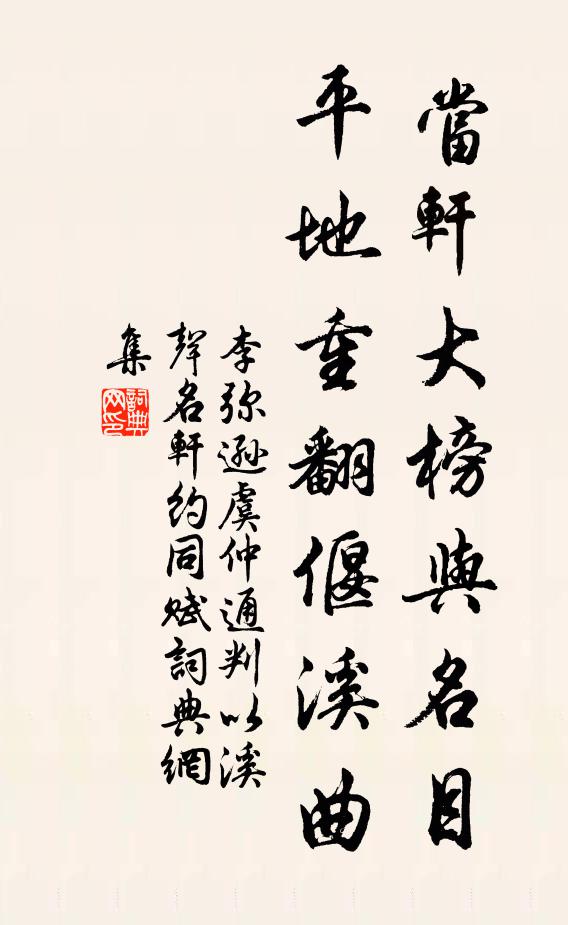 當軒大榜與名目
平地重翻偃溪曲
李弥遜虞仲通判以溪
聲名軒約同賦詞典網
集
詞典網印